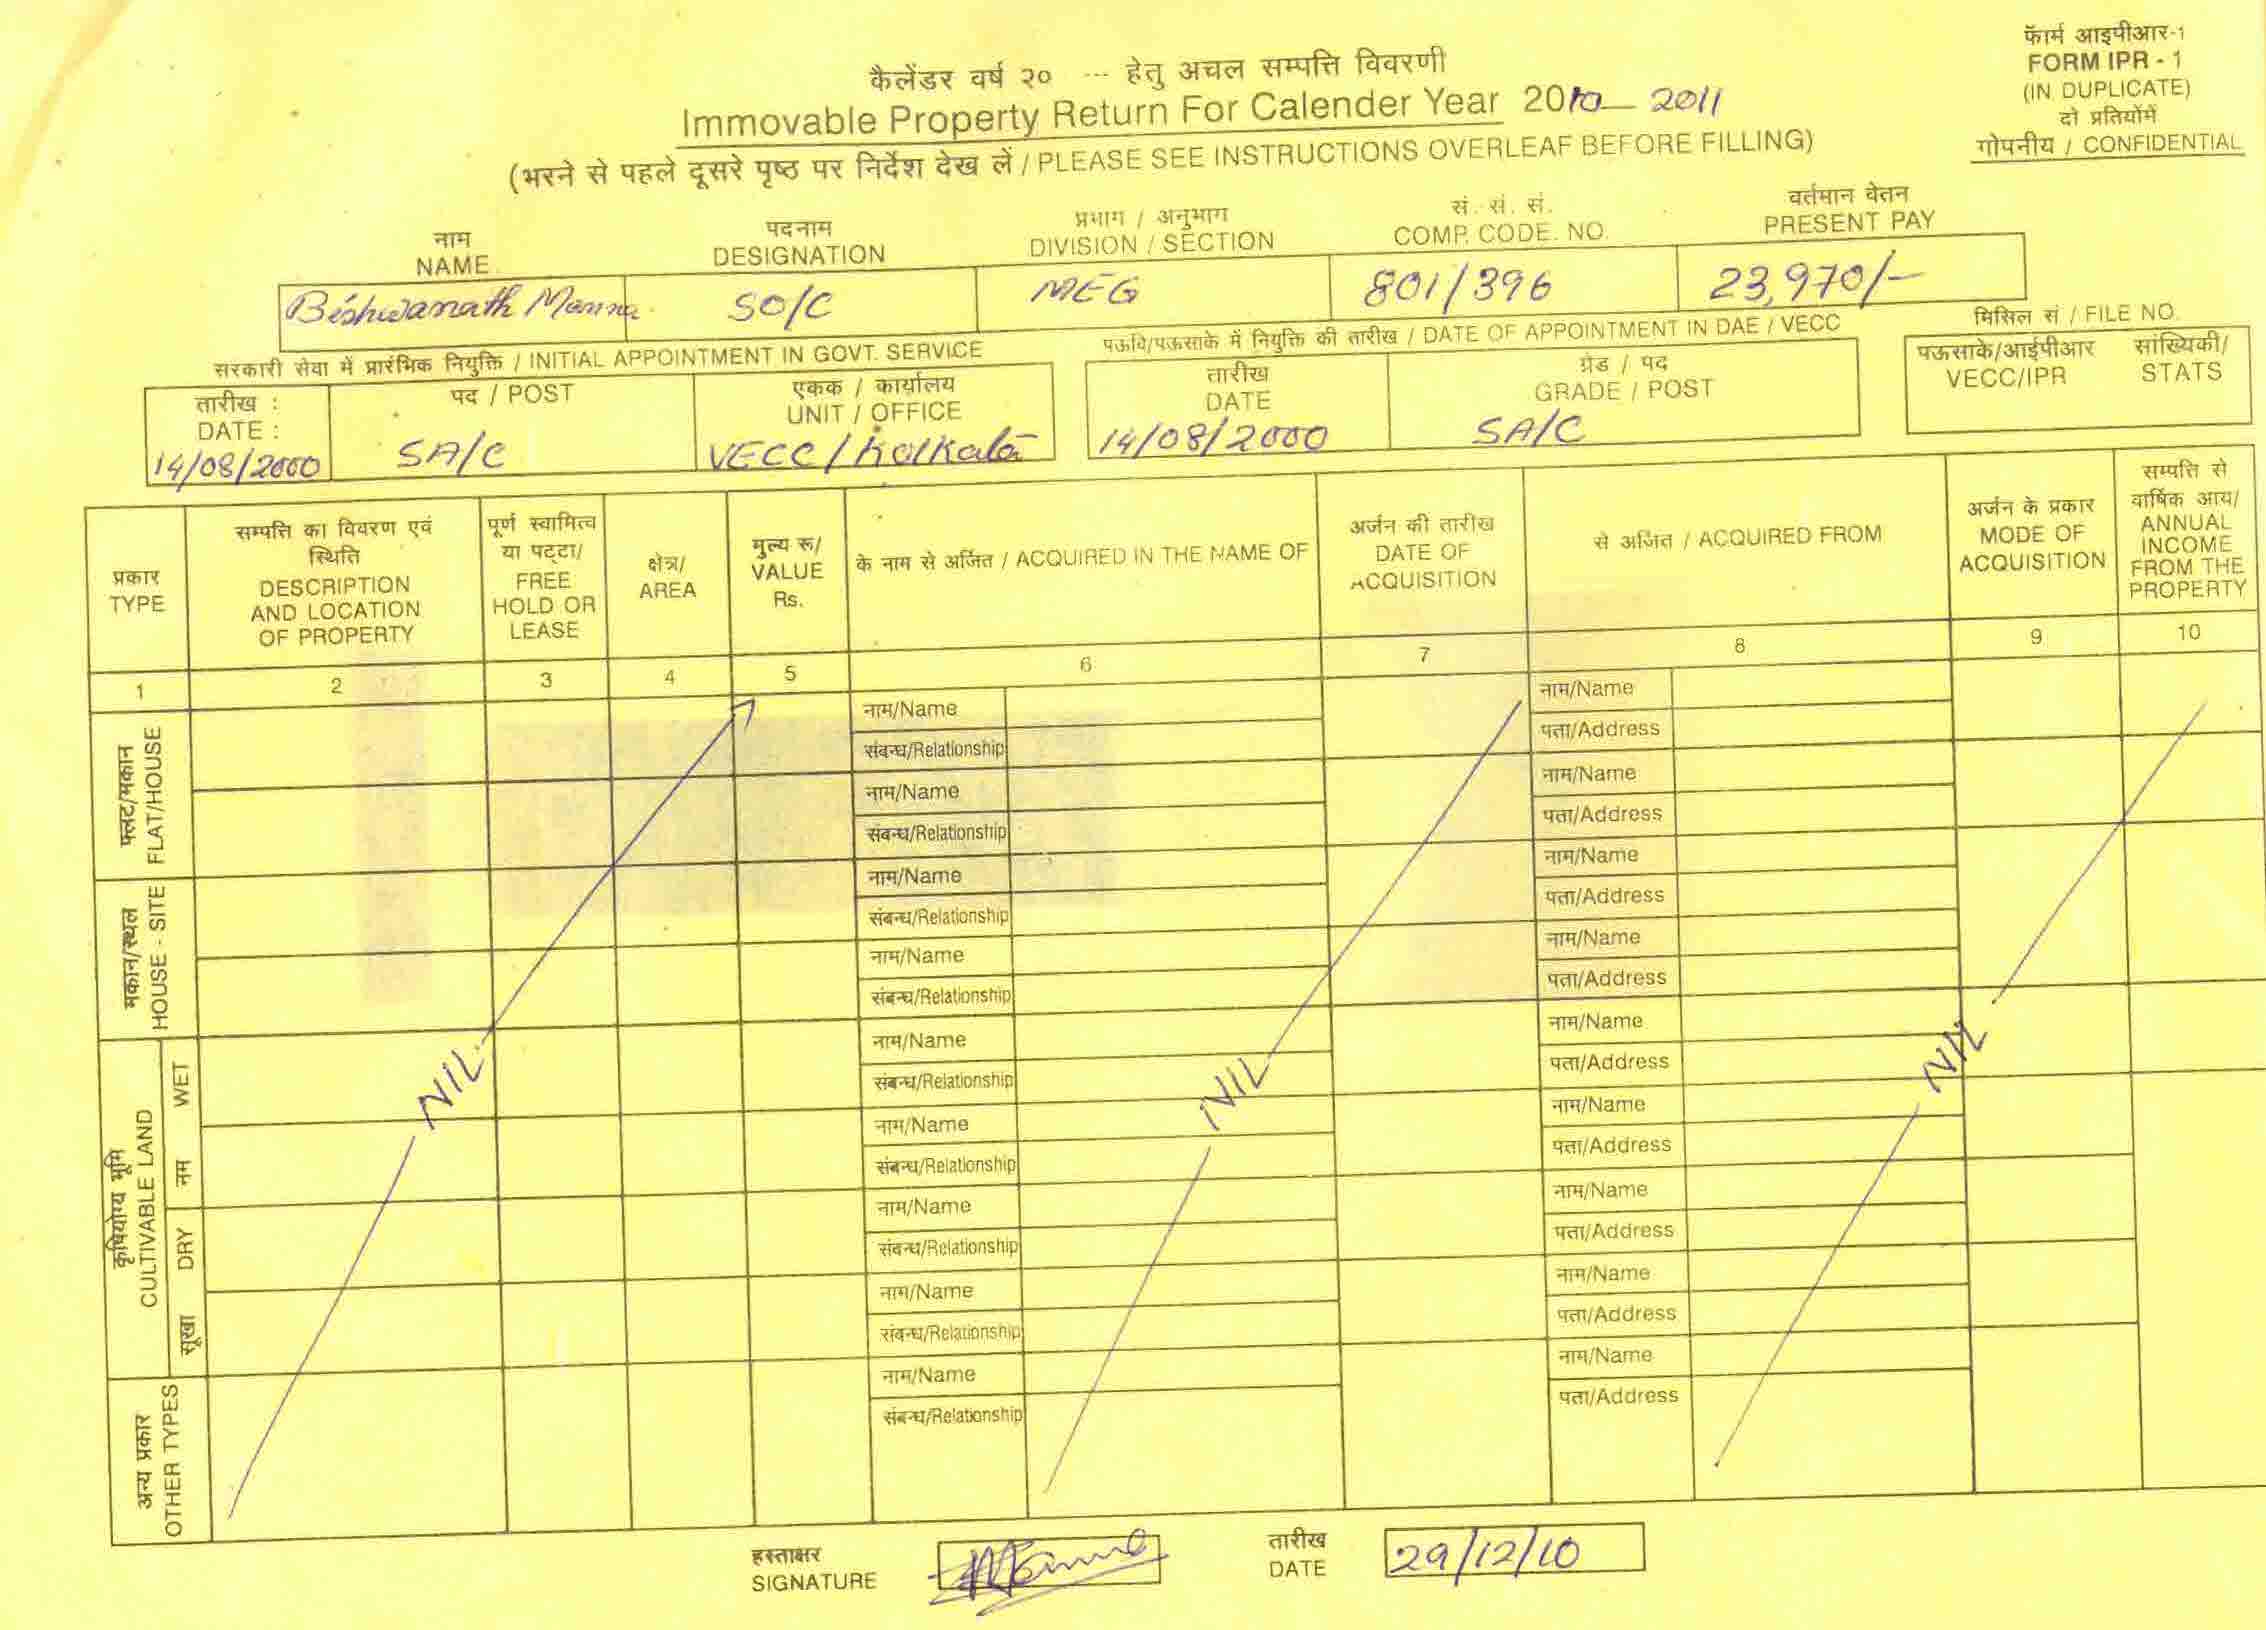 फॅार्म आइपीआर-1
FORM IPR - 1
(IN DUPLICATE)
दो प्रतियोंमें
गोपनीय / CONFIDENTIAL
कैलेंडर वर्ष २० --- हेतु अचल सम्पत्ति विवरणी
Immovable Property Return For Calender Year 2010 - 2011
(भरने से पहले दूसरे पृष्ठ पर निर्देश देख लें / PLEASE SEE INSTRUCTIONS OVERLEAF BEFORE FILLING)
नाम पदनाम प्रभाग / अनुभाग सं. सं. सं. वर्तमान वेतन
NAME DESIGNATION DIVISION / SECTION COMP. CODE. NO. PRESENT PAY
Bishwanath Manna SO/C MEG 801/396 23,970/-
सरकारी सेवा में प्रारंभिक नियुक्ति / INITIAL APPOINTMENT IN GOVT. SERVICE
पऊवि/पऊसाके में नियुक्ति की तारीख / DATE OF APPOINTMENT IN DAE / VECC
मिसिल सं / FILE NO.
तारीख : पद / POST एकक / कार्यालय तारीख ग्रेड / पद पऊसाके/आईपीआर सांख्यिकी/
DATE : UNIT / OFFICE DATE GRADE / POST VECC/IPR STATS
14/08/2000 SA/C VECC/Kolkata 14/08/2000 SA/C
प्रकार
TYPE
सम्पत्ति का विवरण एवं
स्थिति
DESCRIPTION
AND LOCATION
OF PROPERTY
पूर्ण स्वामित्व
या पट्टा/
FREE
HOLD OR
LEASE
क्षेत्र/
AREA
मुल्य रू/
VALUE
Rs.
के नाम से अर्जित / ACQUIRED IN THE NAME OF
अर्जन की तारीख
DATE OF
ACQUISITION
से अर्जित / ACQUIRED FROM
अर्जन के प्रकार
MODE OF
ACQUISITION
सम्पत्ति से
वार्षिक आय/
ANNUAL
INCOME
FROM THE
PROPERTY
1 2 3 4 5 6 7 8 9 10
फ्लट/मकान
FLAT/HOUSE
नाम/Name नाम/Name
संबन्ध/Relationship पता/Address
नाम/Name नाम/Name
संबन्ध/Relationship पता/Address
मकान/स्थल
HOUSE - SITE
नाम/Name नाम/Name
संबन्ध/Relationship पता/Address
नाम/Name नाम/Name
संबन्ध/Relationship पता/Address
कृषियोग्य भूमि
CULTIVABLE LAND
नम WET
NIL NIL NIL
नाम/Name नाम/Name
संबन्ध/Relationship पता/Address
नाम/Name नाम/Name
संबन्ध/Relationship पता/Address
सूखा DRY
नाम/Name नाम/Name
संबन्ध/Relationship पता/Address
नाम/Name नाम/Name
संबन्ध/Relationship पता/Address
अन्य प्रकार
OTHER TYPES
नाम/Name नाम/Name
संबन्ध/Relationship पता/Address
हस्ताक्षर तारीख
SIGNATURE DATE 29/12/10